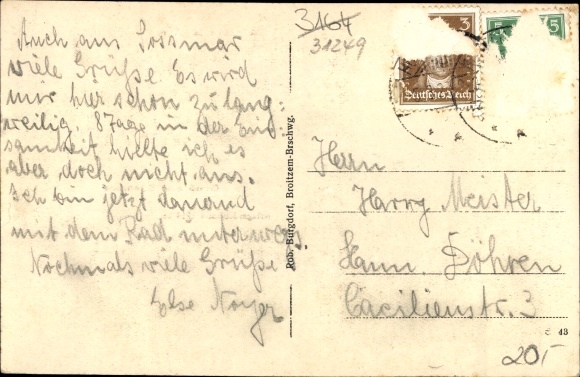 Auch aus Sossmar
viele Grüße. Es wird
mir hier schon zu lang=
weilig. 8 Tage in der Ein
samkeit hielte ich es
aber doch nicht aus.
Ich bin jetzt dauernd
mit dem Rad unterwegs
Nochmals viele Grüße
Else
Rob. Burgdorf, Broitzem-Brschwg.
3164
31249
3
5
5
Deutsches Reich
Herrn
Harry Meister
Hann. Döhren
Cäcilienstr. 3
43
20,-